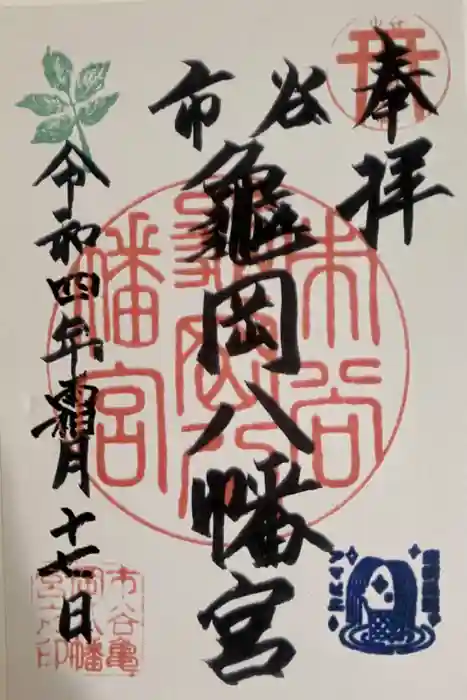 奉拝
市谷
亀岡八幡宮
令和四年霜月十七日
市谷
亀岡八
幡宮
市谷亀
岡八幡
宮之印